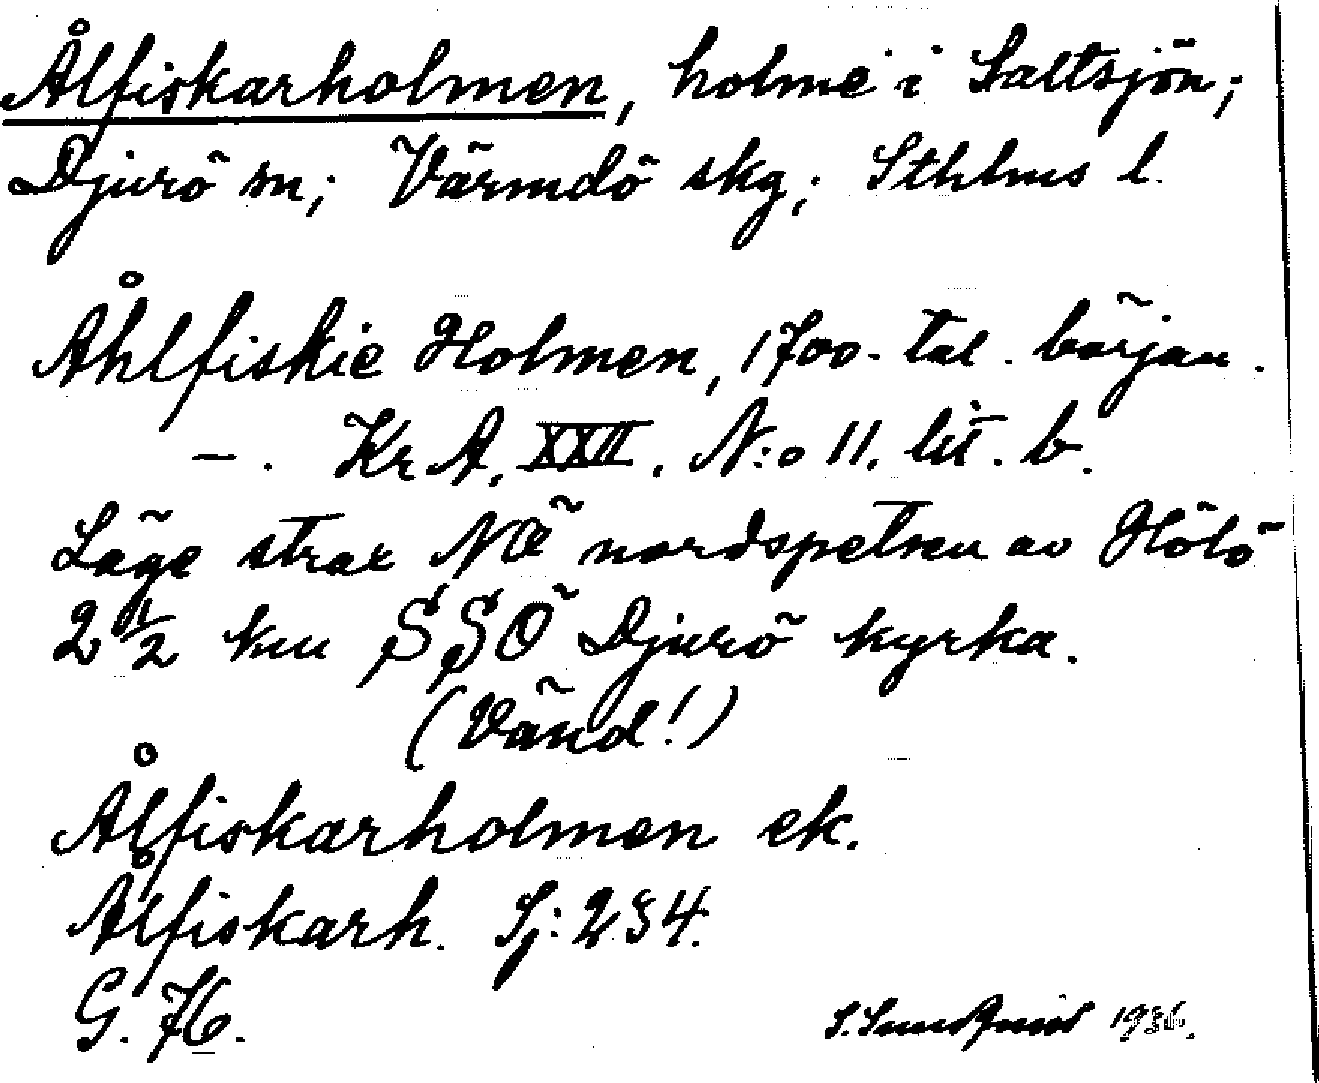 Ålfiskarholmen, holme i Saltsjön;
Djurö sn; Värmdö skg; Sthlms l.
Åhlfiskie Holmen, 1700-tal. början.
—. Kr A, XXII. N:o 11. lit. b.
Läge strax NÖ nordspetsen av Hölö
2 1/2 km SSÖ Djurö kyrka.
(Vänd!)
Ålfiskarholmen ek.
Ålfiskarh. Sj: 234.
G. 76.
S. Sundquist 1936.